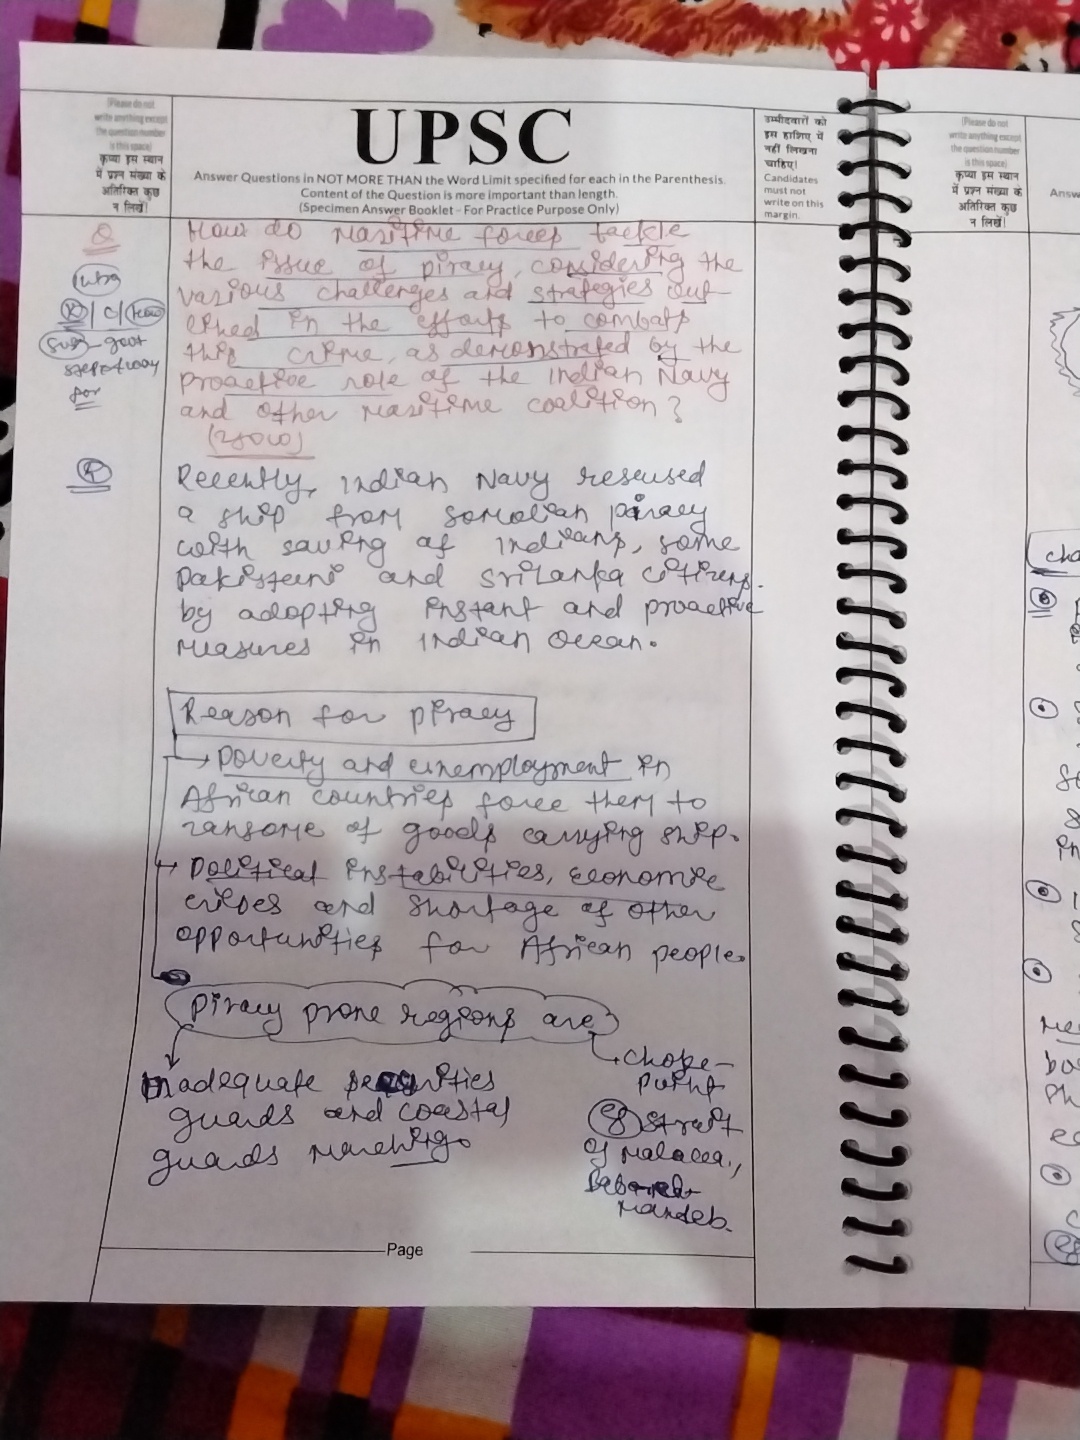 (Please do not
write anything except
the question number
is this space)
कृप्या इस स्थान
में प्रश्न संख्या के
अतिरिक्त कुछ
न लिखें!
UPSC
Answer Questions in NOT MORE THAN the Word Limit specified for each in the Parenthesis.
Content of the Question is more important than length.
(Specimen Answer Booklet - For Practice Purpose Only)
उम्मीदवारों को
इस हाशिए में
नहीं लिखना
चाहिए!
Candidates
must not
write on this
margin.
Q
How do maritime forces tackle
the issue of piracy, considering the
various challenges and strategies out
lined in the efforts to combat
this crime, as demonstrated by the
proactive role of the Indian Navy
and other maritime coalition?
Intro
R/C/
govt
for
R
Recently, Indian Navy rescused
a ship from somolian piracy
with saving of Indians, some
Pakistani and Srilanka citizens.
by adopting instant and proactive
measures in Indian Ocean.
Reason for piracy
→ Poverty and unemployment in
African countries force them to
ransome of goods carrying ship.
→ Political instabilities, economic
crises and shortage of other
opportunities for African people.
Piracy prone regions are
Inadequate
guards and coastal
guards
choke-
point
eg Strait
of Malacca,
Mandeb.
Page
(Please do not
write anything except
the question number
is this space)
कृप्या इस स्थान
में प्रश्न संख्या के
अतिरिक्त कुछ
न लिखें!
Answ
cha
in
eg